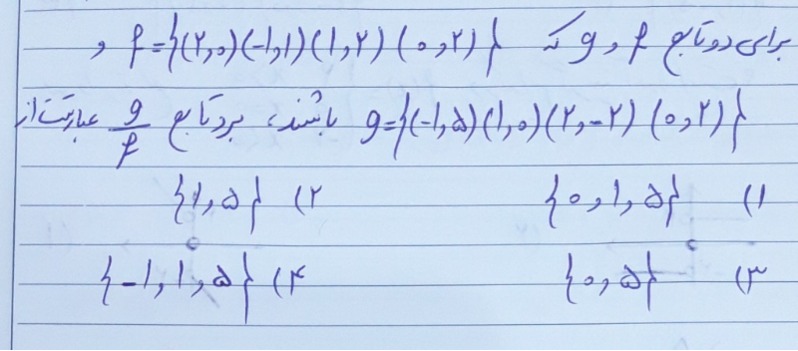 برای دو تابع f و g که f={(۲,۰)(-۱,۱)(۱,۲)(۰,۲)} و
g={(-۱,۵)(۱,۰)(۲,-۲)(۰,۲)} باشند، برد تابع g/f عبارتست از
۱) {۰,۱,۵} ۲) {۱,۵}
۳) {۰,۵} ۴) {-۱,۱,۵}